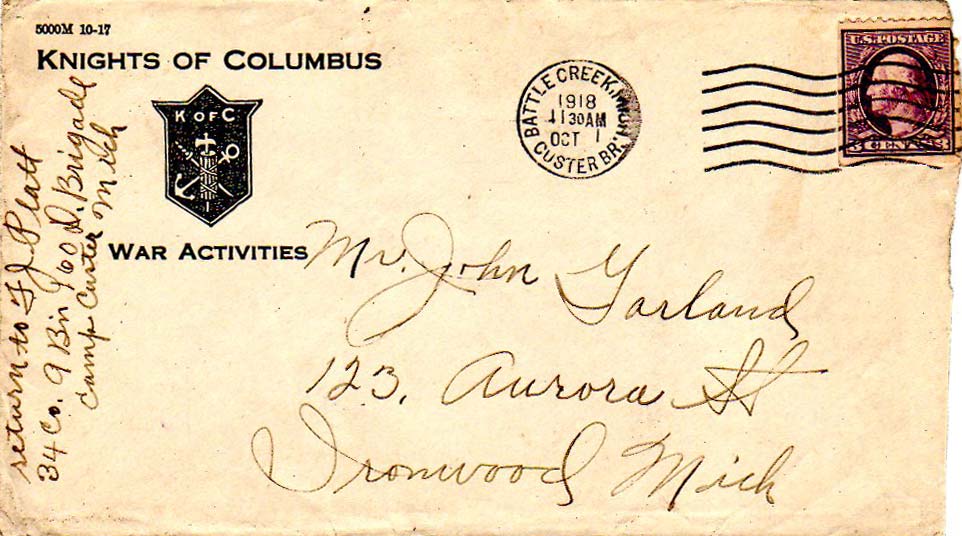 5000M 10-17
KNIGHTS OF COLUMBUS
K OF C
WAR ACTIVITIES
BATTLE CREEK, MICH.
1918
11 30 AM
OCT 1
CUSTER BR.
U.S. POSTAGE
3 CENTS 3
return to F J. Platt
34 Co. 9 Bn 160 D. Brigade
Camp Custer Mich
Mr. John Garland
123. Aurora St
Ironwood Mich